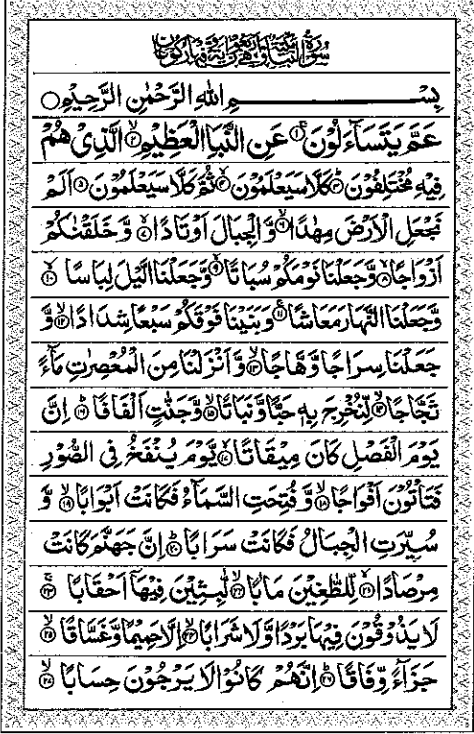 سُوْرَةُ النَّبَاِ مَكِّيَّةٌ
بِسْــــــــــمِ اللهِ الرَّحْمٰنِ الرَّحِيْمِ ○
عَمَّ يَتَسَآءَلُوْنَ ۚ﴿١﴾ عَنِ النَّبَاِ الْعَظِيْمِ ۙ﴿٢﴾ الَّذِيْ هُمْ
فِيْهِ مُخْتَلِفُوْنَ ؕ﴿٣﴾ كَلَّا سَيَعْلَمُوْنَ ۙ﴿٤﴾ ثُمَّ كَلَّا سَيَعْلَمُوْنَ ﴿٥﴾ اَلَمْ
نَجْعَلِ الْاَرْضَ مِهٰدًا ۙ﴿٦﴾ وَّ الْجِبَالَ اَوْتَادًا ۪ۙ﴿٧﴾ وَّ خَلَقْنٰكُمْ
اَزْوَاجًا ۙ﴿٨﴾ وَّجَعَلْنَا نَوْمَكُمْ سُبَاتًا ۙ﴿٩﴾ وَّجَعَلْنَا الَّيْلَ لِبَاسًا ۙ﴿١٠﴾
وَّجَعَلْنَا النَّهَارَ مَعَاشًا ۪﴿١١﴾ وَبَنَيْنَا فَوْقَكُمْ سَبْعًا شِدَادًا ۙ﴿١٢﴾ وَّ
جَعَلْنَا سِرَاجًا وَّهَّاجًا ۪ۙ﴿١٣﴾ وَّ اَنْزَلْنَا مِنَ الْمُعْصِرٰتِ مَآءً
ثَجَّاجًا ۙ﴿١٤﴾ لِّنُخْرِجَ بِهٖ حَبًّا وَّنَبَاتًا ۙ﴿١٥﴾ وَّجَنّٰتٍ اَلْفَافًا ؕ﴿١٦﴾ اِنَّ
يَوْمَ الْفَصْلِ كَانَ مِيْقَاتًا ۙ﴿١٧﴾ يَّوْمَ يُنْفَخُ فِى الصُّوْرِ
فَتَاْتُوْنَ اَفْوَاجًا ۙ﴿١٨﴾ وَّ فُتِحَتِ السَّمَآءُ فَكَانَتْ اَبْوَابًا ۙ﴿١٩﴾ وَّ
سُيِّرَتِ الْجِبَالُ فَكَانَتْ سَرَابًا ؕ﴿٢٠﴾ اِنَّ جَهَنَّمَ كَانَتْ
مِرْصَادًا ۪ۙ﴿٢١﴾ لِّلطّٰغِيْنَ مَاٰبًا ۙ﴿٢٢﴾ لّٰبِثِيْنَ فِيْهَاۤ اَحْقَابًا ۚ﴿٢٣﴾
لَا يَذُوْقُوْنَ فِيْهَا بَرْدًا وَّلَا شَرَابًا ۙ﴿٢٤﴾ اِلَّا حَمِيْمًا وَّغَسَّاقًا ۙ﴿٢٥﴾
جَزَآءً وِّفَاقًا ؕ﴿٢٦﴾ اِنَّهُمْ كَانُوْا لَا يَرْجُوْنَ حِسَابًا ۙ﴿٢٧﴾